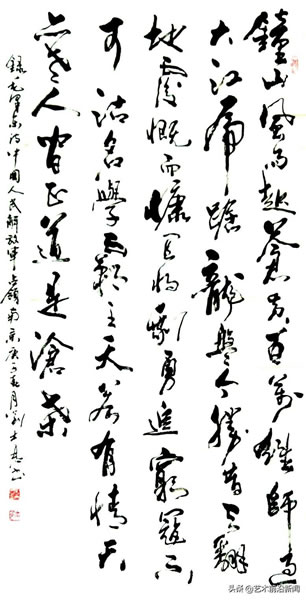 鐘山風雨起蒼黄百萬雄師過
大江虎踞龍盤今勝昔天翻
地覆慨而慷宜將剩勇追窮寇不
可沽名學霸王天若有情天
亦老人間正道是滄桑
録毛澤東詩中國人民解放軍占領南京庚子春月劉士
头条 @艺术前沿新闻